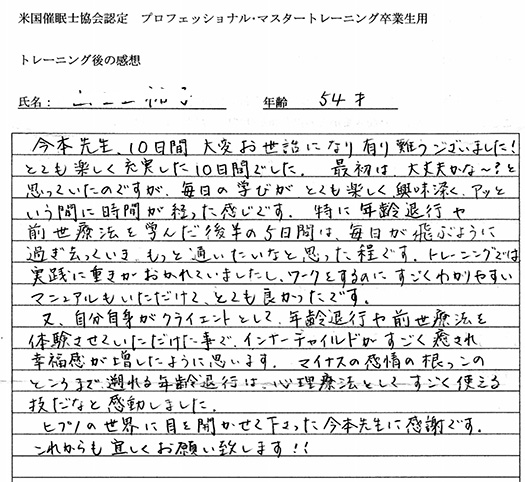 米国催眠士協会認定　プロフェッショナル・マスタートレーニング卒業生用
トレーニング後の感想
氏名：
年齢　54才
今本先生、10日間 大変お世話になり有り難うございました!
とても楽しく充実した10日間でした。 最初は、大丈夫かな～?と
思っていたのですが、毎日の学びが とても楽しく興味深く、アッと
いう間に時間が経った感じです。 特に 年齢退行や
前世療法を学んだ後半の5日間は、毎日が飛ぶように
過ぎ去っていき、もっと通いたいなと思った程です。トレーニングでは
実践に重きがおかれていましたし、ワークをするのに すごくわかりやすい
マニュアルもいただけて、とても良かったです。
又、自分自身がクライエントとして、年齢退行や前世療法を
体験させていただけた事で、インナーチャイルドがすごく癒され
幸福感が増したように思います。 マイナスの感情の根っこの
ところまで遡れる年齢退行は、心理療法としてすごく使える
技だなと感動しました。
ヒプノの世界に目を開かせて下さった今本先生に感謝です。
これからも宜しくお願い致します!!